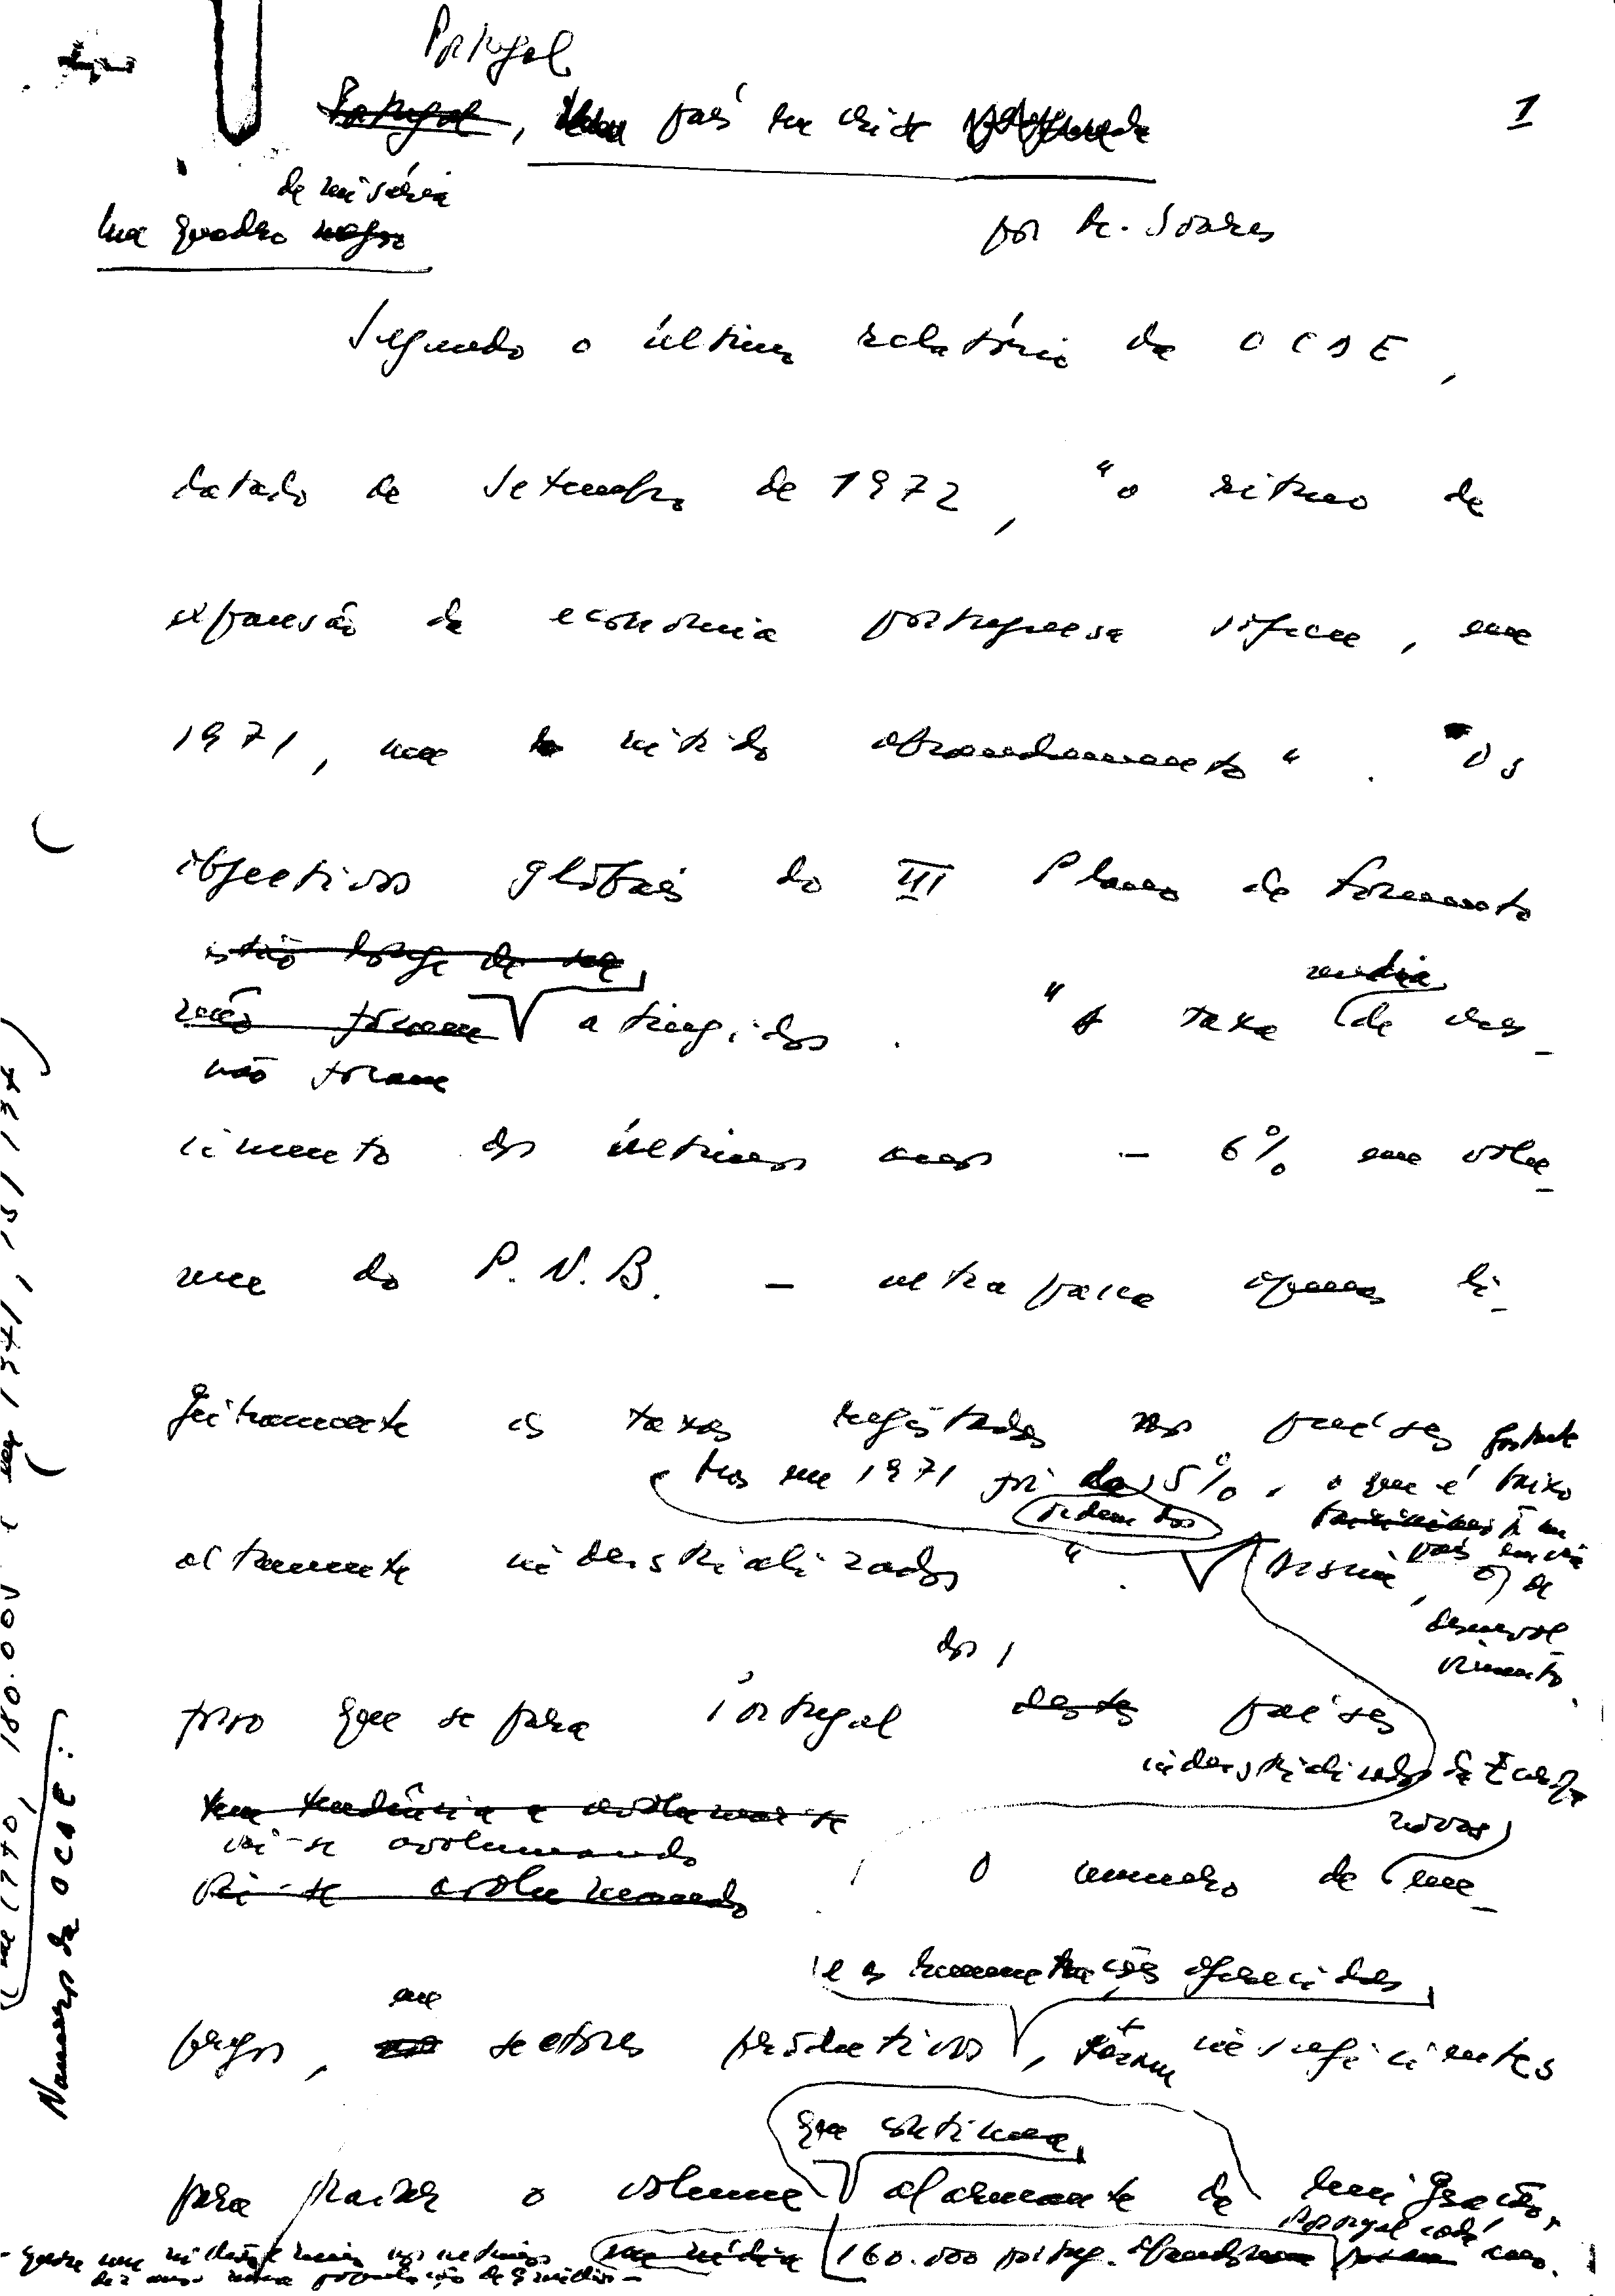 Portugal
Portugal, um país em crise
1
de miséria
Um quadro negro
por M. Soares
Segundo o último relatório da OCDE,
datado de Setembro de 1972, "o ritmo de
expansão da economia portuguesa sofreu, em
1971, um nítido abrandamento". Os
objectivos globais do III Plano de Fomento
estão longe de ser
não foram atingidos. "A taxa média de cres-
não foram
cimento dos últimos anos — 6% em volu-
me do P.N.B. — ultrapassa apenas li-
geiramente as taxas registadas nos países
mas em 1971 foi de 5%, o que é baixo
altamente industrializados".
país em via
de
desenvol
vimento.
fosso que separa Portugal destes países
dos
industrializados da Europa
tem tendência a avolumar-se
vai-se avolumando
vai-se avolumando
O número de novos em-
e as remunerações oferecidas
pregos, em sectores produtivos, foram insuficientes
que continua
para travar o volume alarmante da emigração,
160.000 portug. abandonam Portugal cada ano.
- quase um milhão e meio nos últimos
dez anos numa população de 9 milhões -
Números da OCDE:
(em 1970, 180.000 e em 1971, 151.134)